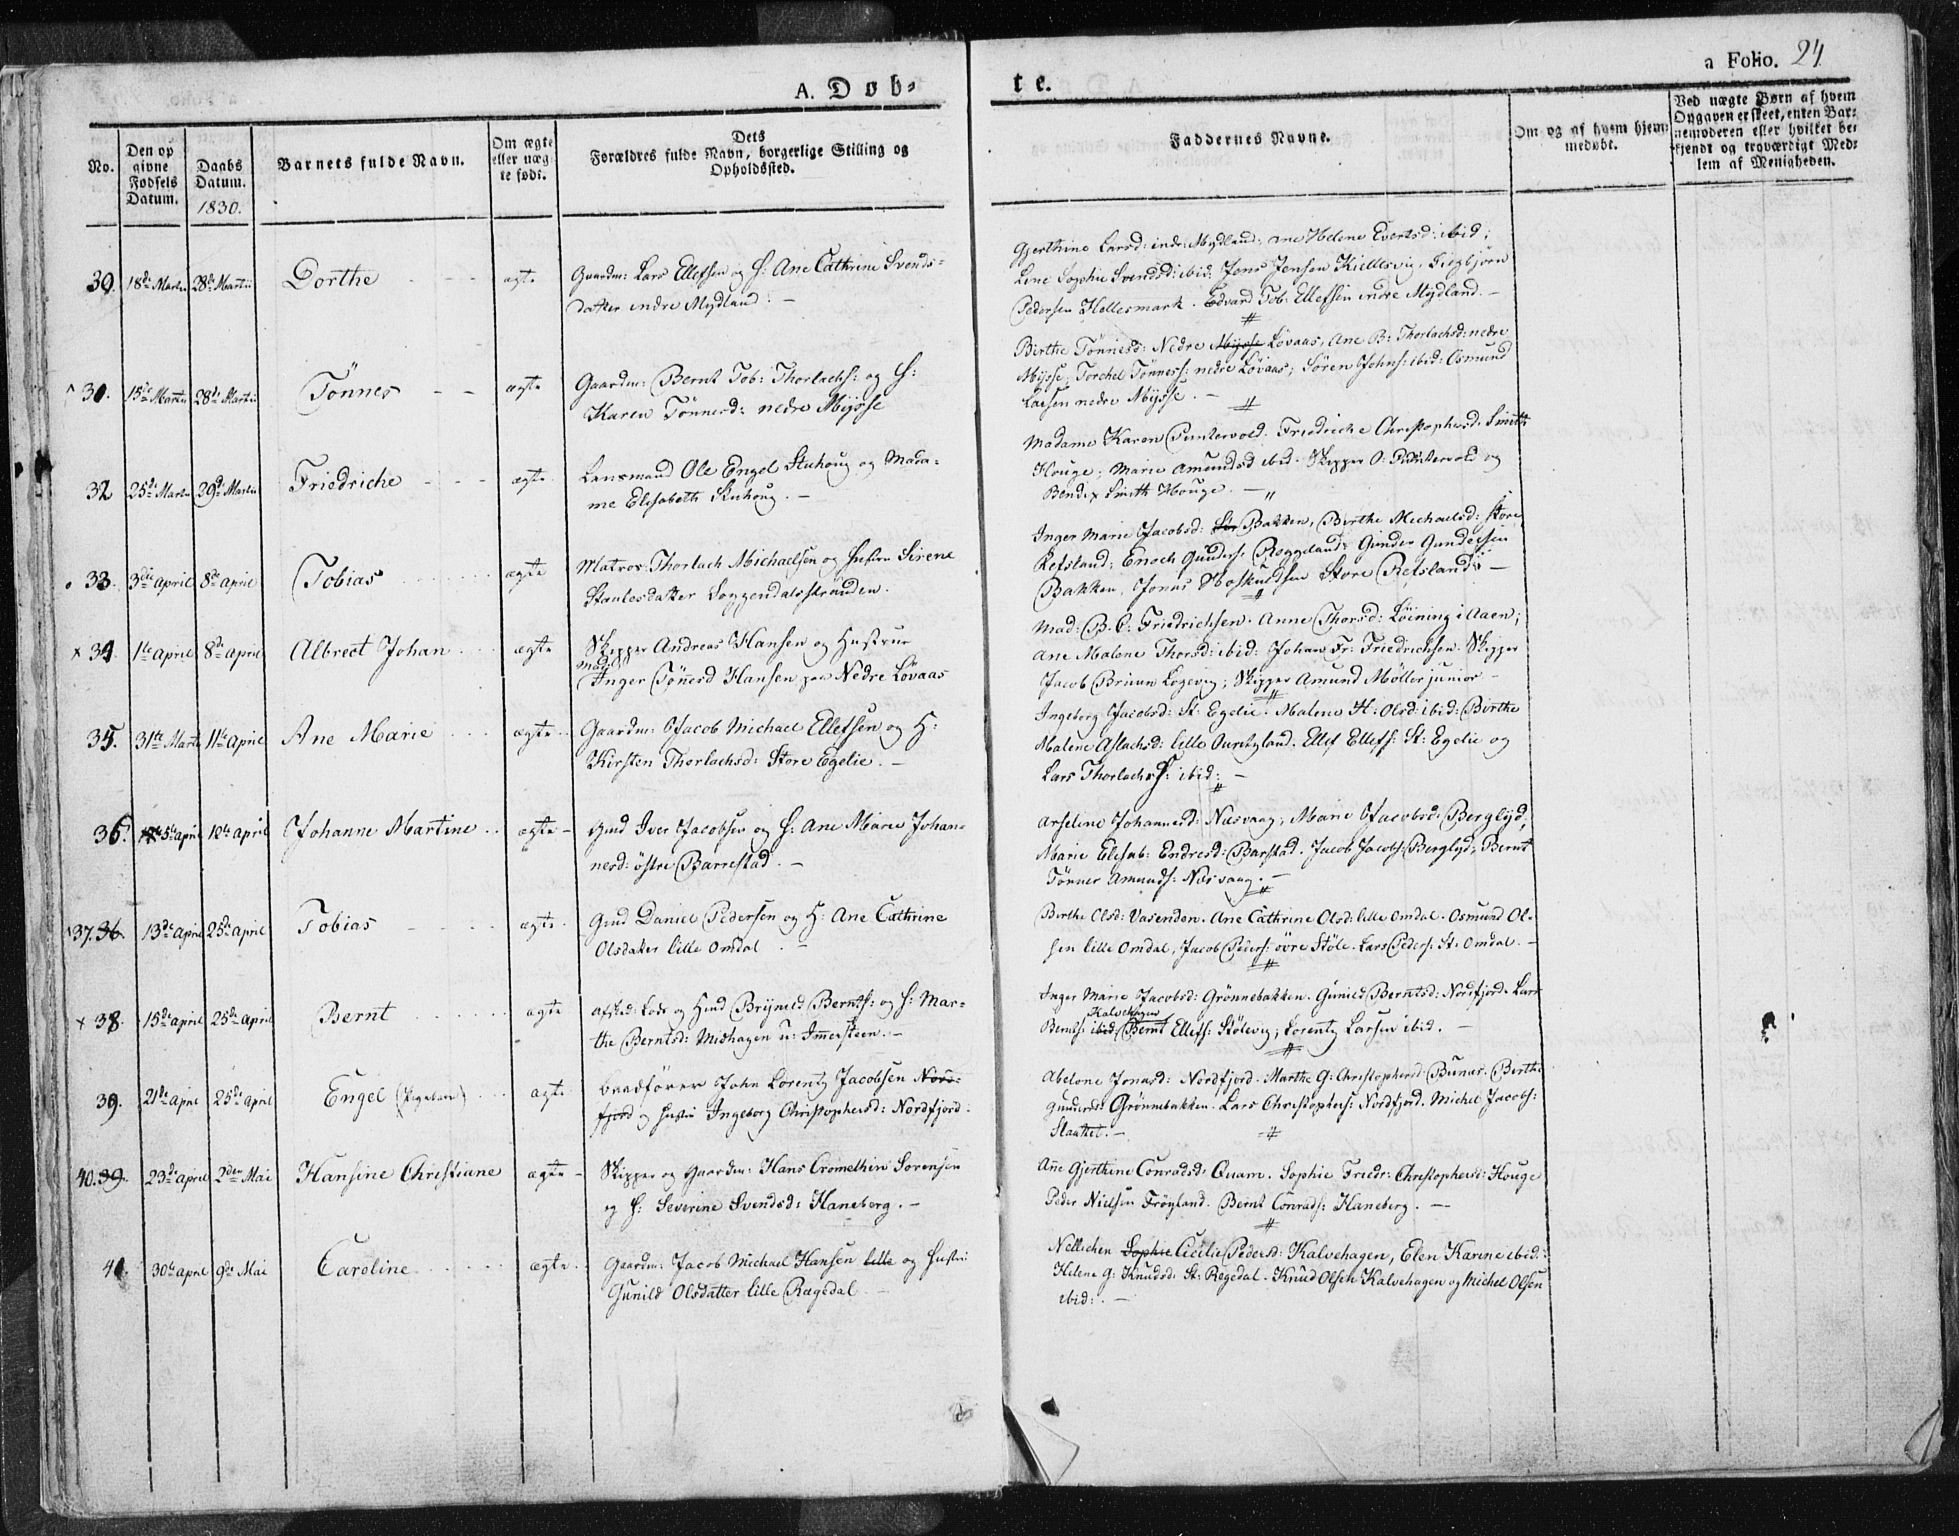 A. Döb-
te.
a Folio. 24
No.
Den op
givne
Fødsels
Datum.
Daabs
Datum.
1830.
Barnets fulde Navn.
Om ægte
eller uæg-
te født.
Dets
Forældres fulde Navn, borgerlige Stilling og
Opholdssted.
Faddernes Navne.
Om og af hvem hjem-
medøbt.
Ved uægte Børn af hvem
Opgaven er skeet, enten Bar-
nemoderen eller hvilket be-
kjendt og troværdigt Med-
lem af Menigheden.
30. 18de Martii 28de Martii Dorthe ægte
Gaardm: Lars Ellefsen og H: Ane Cathrine Svends-
datter indre Mydland. —
Gjerthine Larsd: indre Mydland; Ane Helene Evertsd: ibid;
Lene Sophie Svendsd: ibid; Jens Jensen Kiellesvig, Fiegbjörn
Pedersen Hellesmark. Edvard Tob: Ellefsen indre Mydland. —
31. 15de Martii 28de Martii Tönnes ægte
Gaardm: Bernt Tob: Thorlachs: og H:
Karen Tönnesd: nedre Mysse
Birthe Tönnesd: Nedre Mysse Lövaas, Ane B: Thorlachsd: nedre
Mysse; Torchel Tönness: nedre Lövaas; Sören Johns: ibid: Osmund
Larsen nedre Mysse. —
32 25de Martii 29de Martii Friedriche ægte
Lensmand Ole Engel Stuhoug og Mada-
me Elisabeth Stuhoug. —
Madame Karen Puntervold. Friedriche Christophersd. Smith
Houge; Marie Amundsd ibid. Skipper O: Puntervold og
Bendix Smith Houge. —
33. 3die April 8de April Tobias ægte
Matros Thorlach Michaelsen og Hustru Sirene
Stanlesdatter Soggendalsstranden.
Inger Marie Jacobsd: Bakken, Birthe Michaelsd: Store
Refsland; Enoch Gunders: Roggeland; Gunder Gundersen
Bakken, Jonas Hoskuldsen Store Refsland. —
34. 1te April 8de April Albrect Johan ægte
Skipper Andreas Hansen og Hustrue
Mad:
Inger Tönnesd Hansen paa Nedre Lövaas
Mad: B. C: Friedrichsen. Anne Thorsd: Löining i Aaen;
Ane Malene Thorsd: ibid: Johan Fr: Friedrichsen. Skipper
Jacob Bruun Logevig; Skipper Amund Möller junior —
35. 31te Martii 11te April Ane Marie ægte
Gaardm: Jacob Michael Ellefsen og H:
Kirsten Thorlachsd: Store Egelie. —
Ingeborg Jacobsd: St. Egelie. Malene H: Olsd: ibid: Birthe
Malene Aslachsd: lille Guritzland. Ellef Ellefs: St: Egelie og
Lars Thorlachs: ibid: —
36. 5te April 12te April Johanne Martine ægte
Gmd Iver Jacobsen og H: Ane Marie Johan-
nesd: östre Barrestad. —
Arseline Johannesd: Næsvaag, Marie Jacobsd: Berglyd,
Marie Elisab: Endresd: Barstad. Jacob Jacobs: Berglyd; Bernt
Tönnes Amunds: Næsvaag. —
37. 36. 13de April 25de April Tobias ægte
Gmd Daniel Pedersen og H: Ane Cathrine
Olsdatter lille Omdal —
Birthe Olsd: Vasenden. Ane Cathrine Olsd: lille Omdal. Osmund Ol-
sen lille Omdal, Jacob Peders: övre Stöle. Lars Peders: St: Omdal. —
38. 15de April 25de April Bernt ægte
Afsked: Lods og Hmd Brynild Bernts: og H: Mar-
the Berntsd: Midhagen u: Immersteen. —
Inger Marie Jacobsd: Grönnebakken. Gunild Berntsd: Nordfjord. Lars
Kalvehagen
Bernts: ibid: Bernt Ellefs: Stölevig; Lorentz Larsen ibid. —
39. 21de April 25de April Engel (Pigebarn) ægte
Baadförer John Lorentz Jacobsen Nord-
fjord og Hustru Ingeborg Christophersd: Nordfjord:
Abelone Jonasd: Nordfjord. Marthe G: Christophersd: Bunes. Birthe
Gundersd: Grönnebakken. Lars Christophers: Nordfjord. Michel Jacobs:
—
40. 39. 23de April 2den Mai Hansine Christiane ægte
Skipper og Gaardm: Hans Cromethin Sörensen
og H: Severine Svendsd: Haneberg. —
Ane Gjerthine Conradsd: Quam. Sophie Friedr: Christophersd: Houge
Peder Nielsen Fröyland. Bernt Conrads: Haneberg. —
41. 30te April 9de Mai Caroline ægte
Gaardm: Jacob Michael Hansen lille og Hustru
Gunild Olsdatter lille Rægedal —
Nellichen Sophie Cicilie Pedersd: Kalvehagen, Elen Karine ibid:
Helene G: Knudsd: St: Regedal. Knud Olsen Kalvehagen og Michel Olsen
ibid: —